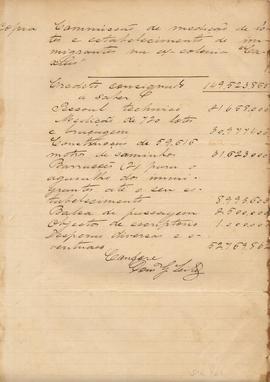 Copia Commissão de medição de lo-
tes e estabelecimento de im-
migrantes na ex-colonia
Credito consignado 149,523,868
a saber
Pessoal technico 21,658,000
Medicão de 720 lots
e 30,977,400
Construcção de 59,616
metros de caminhos 31,623,000
Barracões (2) para o
agasalho dos immi-
grantes até o seu es-
tabelecimento
Balsa de passagem 2,500,000
Objectos de escriptorio 1,000,000
Despezas diversas e e-
ventuaes 52,769,862
Confere